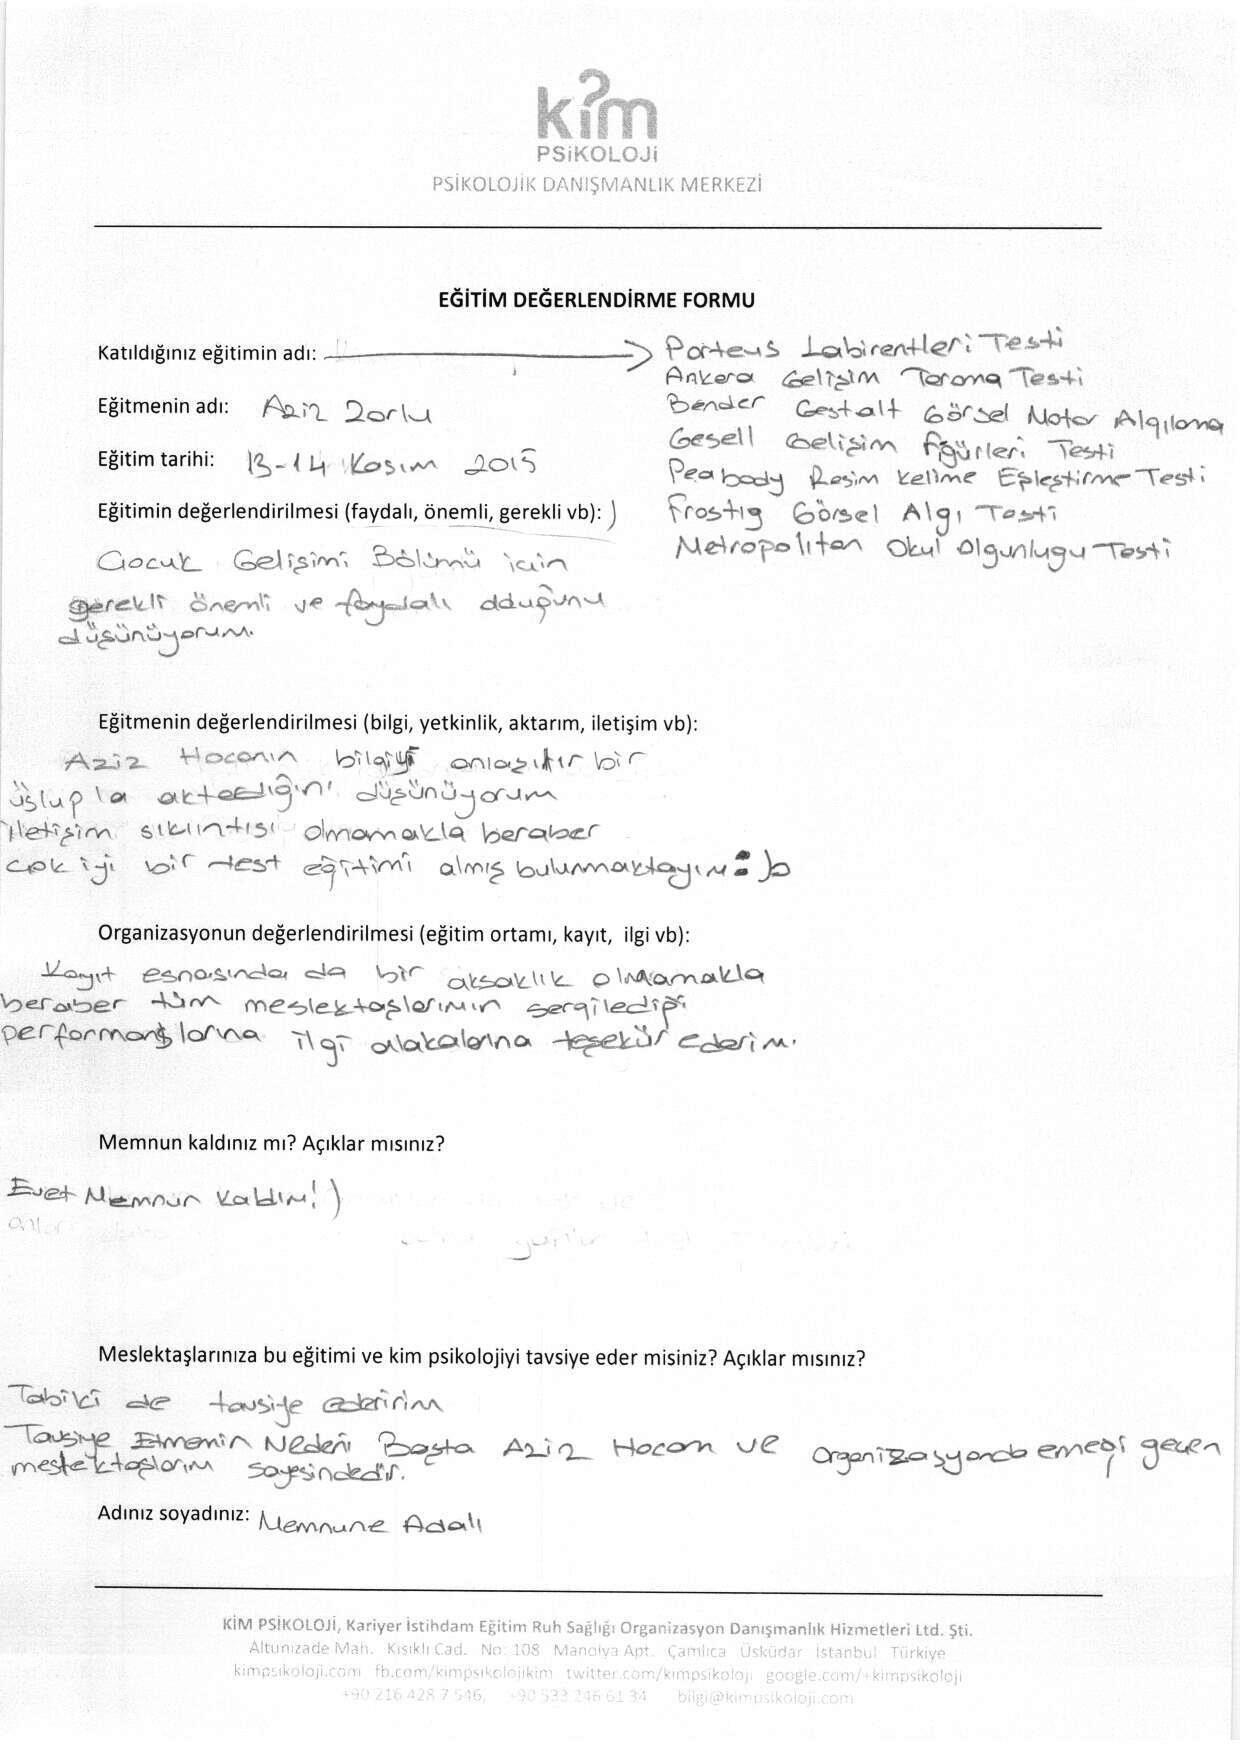 kim
PSiKOLOJi
PSİKOLOJİK DANIŞMANLIK MERKEZİ
EĞİTİM DEĞERLENDİRME FORMU
Katıldığınız eğitimin adı: Porteus Labirentleri Testi
Ankara Gelişim Tarama Testi
Bender Gestalt Görsel Motor Algılama
Gesell Gelişim Figürleri Testi
Peabody Resim Kelime Eşleştirme Testi
Frostig Görsel Algı Testi
Metropolitan Okul Olgunlugu Testi
Eğitmenin adı: Aziz Zorlu
Eğitim tarihi: 13-14 Kasım 2015
Eğitimin değerlendirilmesi (faydalı, önemli, gerekli vb):)
Çocuk Gelişimi Bölümü için
gerekli önemli ve faydalı olduğunu
düşünüyorum.
Eğitmenin değerlendirilmesi (bilgi, yetkinlik, aktarım, iletişim vb):
Aziz Hocanın bilgiyi anlaşılır bir
üslupla aktardığını düşünüyorum
iletişim sıkıntısı olmamakla beraber
çok iyi bir test eğitimi almış bulunmaktayım :)
Organizasyonun değerlendirilmesi (eğitim ortamı, kayıt, ilgi vb):
Kayıt esnasında da bir aksaklık olmamakla
beraber tüm meslektaşlarımın sergilediği
performanslarına ilgi alakalarına teşekür ederim.
Memnun kaldınız mı? Açıklar mısınız?
Evet Memnun Kaldım!)
Meslektaşlarınıza bu eğitimi ve kim psikolojiyi tavsiye eder misiniz? Açıklar mısınız?
Tabiki de tavsiye ederirim
Tavsiye Etmemin Nedeni Başta Aziz Hocam ve organizasyonda emeği geçen
meslektaşlarım sayesindedir.
Adınız soyadınız: Memnune Adalı
KİM PSİKOLOJİ, Kariyer İstihdam Eğitim Ruh Sağlığı Organizasyon Danışmanlık Hizmetleri Ltd. Şti.
Altunizade Mah. Kısıklı Cad. No: 108 Manolya Apt. Çamlıca Üsküdar İstanbul Türkiye
kimpsikoloji.com fb.com/kimpsikolojikim twitter.com/kimpsikoloji google.com/+kimpsikoloji
+90 216 428 7 546, +90 533 246 61 34 bilgi@kimpsikoloji.com